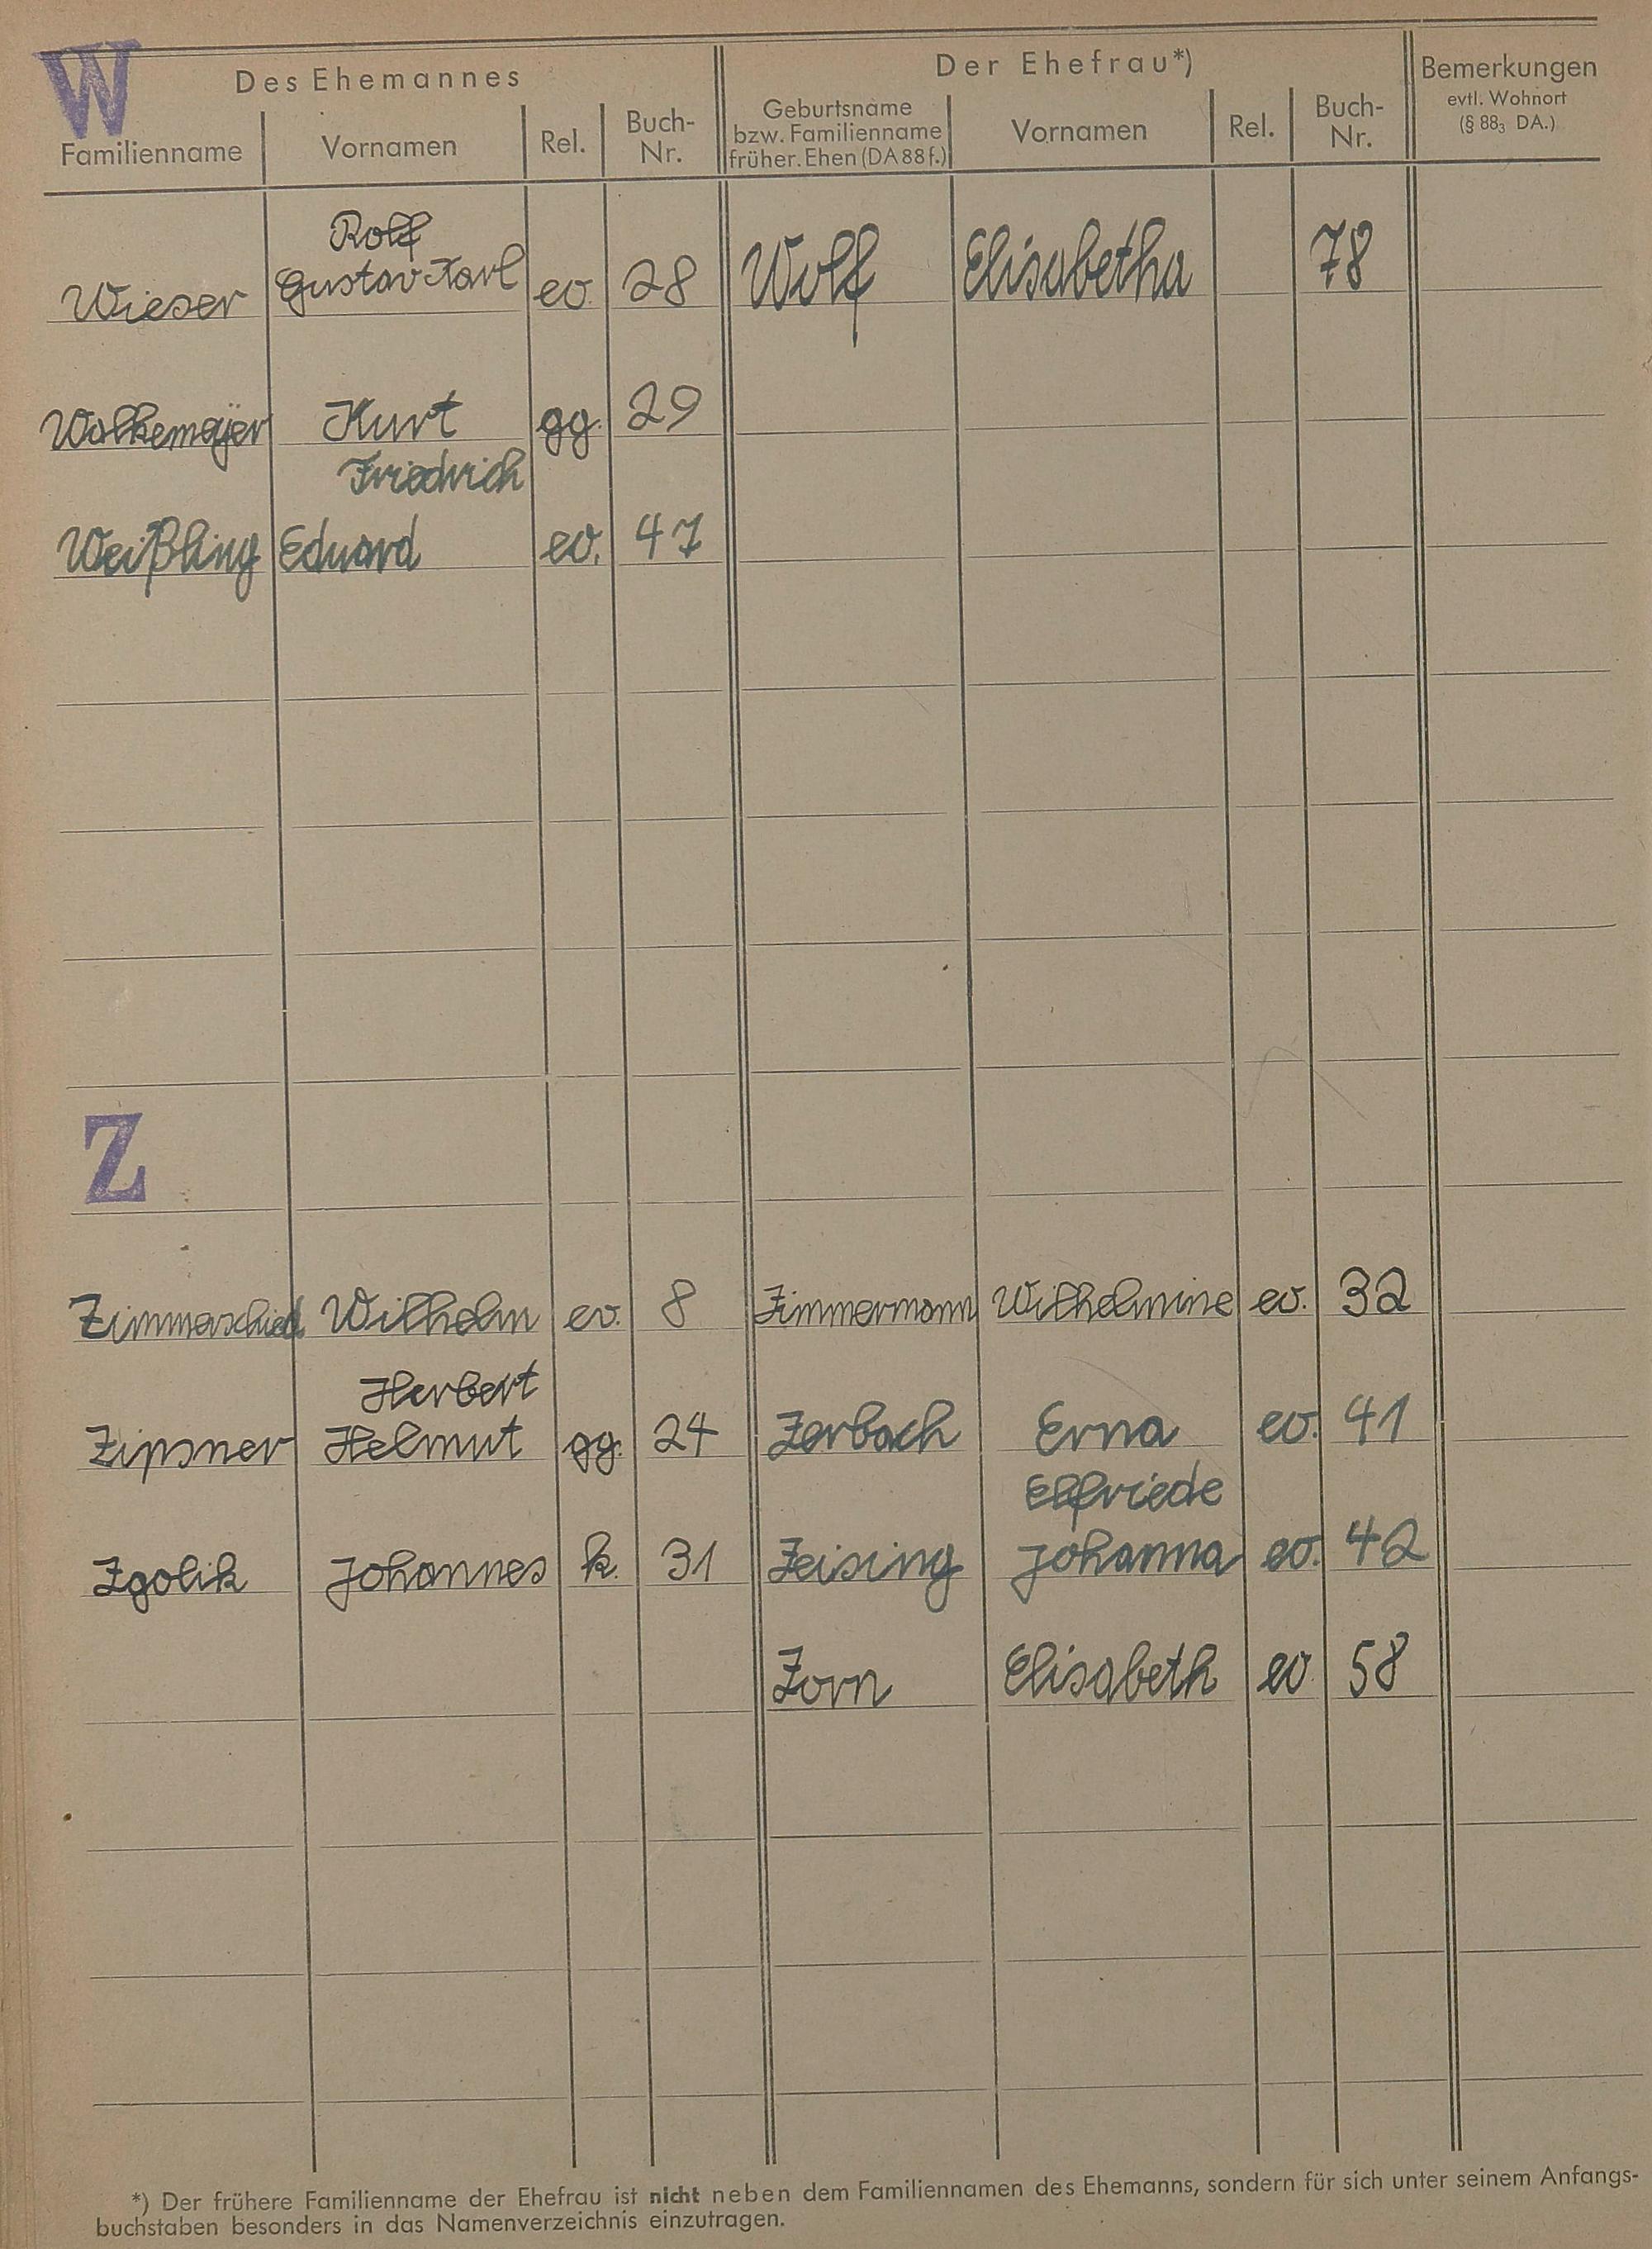 W
Des Ehemannes Der Ehefrau*) Bemerkungen
evtl. Wohnort
(§ 88₃ DA.)
Familienname Vornamen Rel. Buch-Nr. Geburtsname bzw. Familienname früher. Ehen (DA 88 f.) Vornamen Rel. Buch-Nr.
Rolf
Wieser Gustav Karl ev. 28 Wolf Elisabetha 78
Kurt gg. 29
Friedrich
Weißling Eduard ev. 47
Z
Zimmerschied Wilhelm ev. 8 Zimmermann Wilhelmine ev. 32
Herbert
Zipsner Helmut gg. 24 Zerbach Erna ev. 41
Elfriede
Zgolik Johannes k. 31 Zeising Johanna ev. 42
Zorn Elisabeth ev 58
*) Der frühere Familienname der Ehefrau ist nicht neben dem Familiennamen des Ehemanns, sondern für sich unter seinem Anfangs-
buchstaben besonders in das Namenverzeichnis einzutragen.